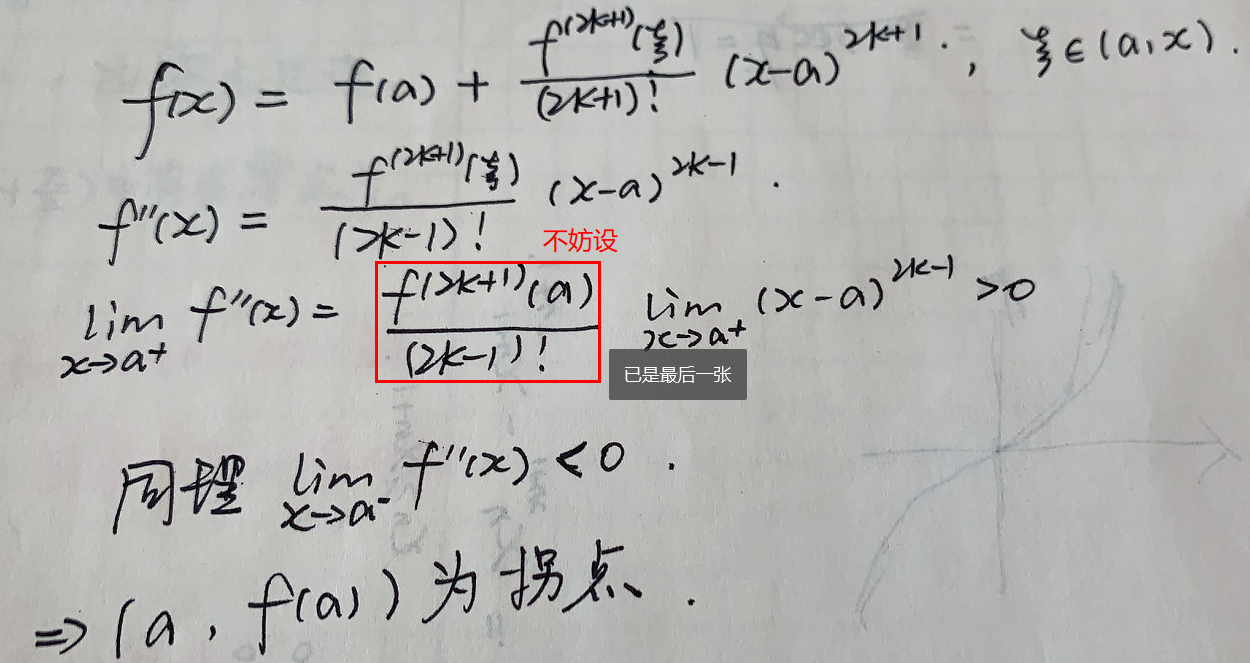 f(x) = f(a) + f^(2k+1)(ξ)/(2k+1)! (x-a)^2k+1 . , ξ∈(a,x) .
f''(x) = f^(2k+1)(ξ)/(2k-1)! (x-a)^2k-1 .
不妨设
lim x→a+ f''(x) = f^(2k+1)(a)/(2k-1)! lim x→a+ (x-a)^2k-1 >0
已是最后一张
同理 lim x→a- f''(x) <0 .
⇒ (a, f(a)) 为拐点 .